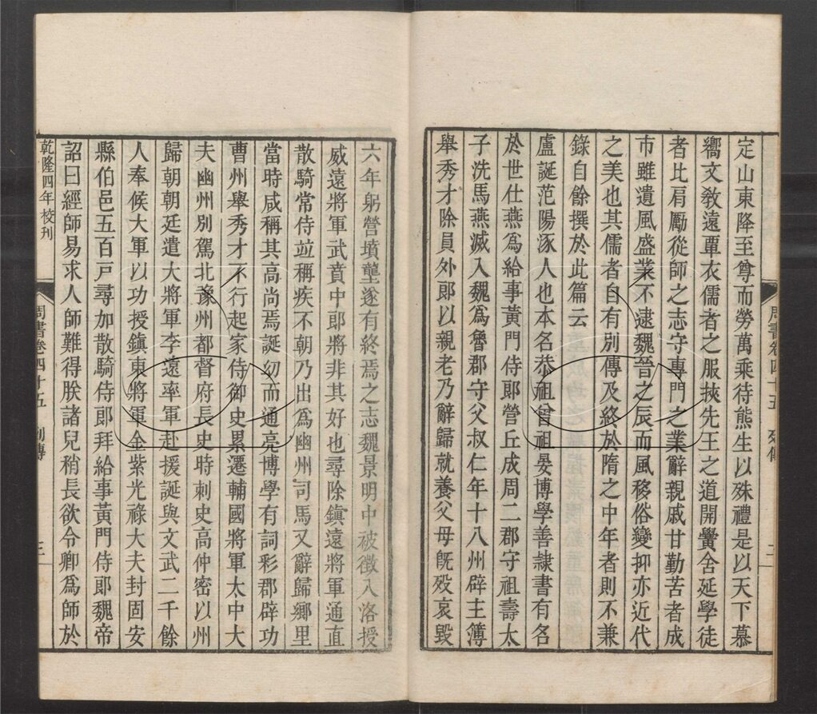 定山東降至尊而勞萬乘待熊生以殊禮是以天下慕
嚮文敎遠覃衣儒者之服挾先王之道開黌舍延學徒
者比肩勵從師之志守專門之業辭親戚甘勤苦者成
市雖遺風盛業不逮魏晉之辰而風移俗變抑亦近代
之美也其儒者自有別傳及終於隋之中年者則不兼
錄自餘撰於此篇云
盧誕范陽涿人也本名恭祖曾祖晏博學善隸書有名
於世仕燕爲給事黃門侍郞營丘成周二郡守祖壽太
子洗馬燕滅入魏爲魯郡守父叔仁年十八州辟主簿
舉秀才除員外郞以親老乃辭歸就養父母旣歿哀毀
六年躬營墳壟遂有終焉之志魏景明中被徵入洛授
威遠將軍武賁中郞將非其好也尋除鎭遠將軍通直
散騎常侍並稱疾不朝乃出爲幽州司馬又辭歸鄉里
當時咸稱其高尚焉誕幼而通亮博學有詞彩郡辟功
曹州舉秀才不行起家侍御史累遷輔國將軍太中大
夫幽州別駕北豫州都督府長史時刺史高仲密以州
歸朝朝廷遣大將軍李遠率軍赴援誕與文武二千餘
人奉候大軍以功授鎭東將軍金紫光祿大夫封固安
縣伯邑五百戸尋加散騎侍郞拜給事黃門侍郞魏帝
詔曰經師易求人師難得朕諸兒稍長欲令卿爲師於
乾隆四年校刊
周書卷四十五 列傳 三